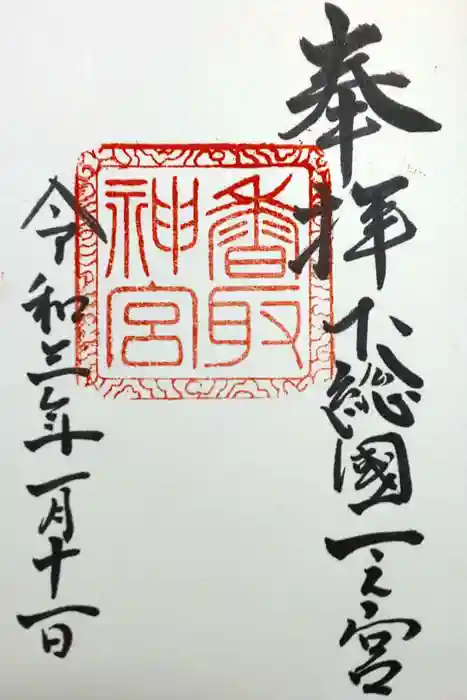 奉拝 下総國一之宮
香取
神宮
令和三年一月十一日